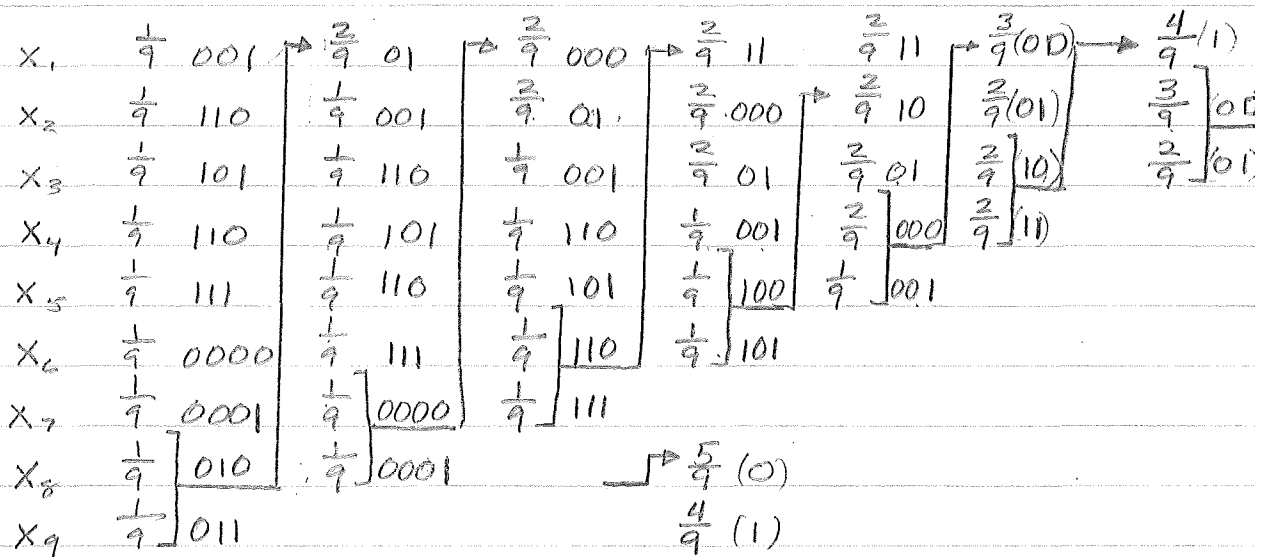 X₁ 1/9 001 2/9 01 2/9 000 2/9 11 2/9 11 3/9 (00) 4/9 (1)
X₂ 1/9 110 1/9 001 2/9 01 2/9 000 2/9 10 2/9 (01) 3/9 (00
X₃ 1/9 101 1/9 110 1/9 001 2/9 01 2/9 01 2/9 (10) 2/9 (01)
X₄ 1/9 110 1/9 101 1/9 110 1/9 001 2/9 000 2/9 (11)
X₅ 1/9 111 1/9 110 1/9 101 1/9 100 1/9 001
X₆ 1/9 0000 1/9 111 1/9 110 1/9 101
X₇ 1/9 0001 1/9 0000 1/9 111
X₈ 1/9 010 1/9 0001 5/9 (0)
X₉ 1/9 011 4/9 (1)